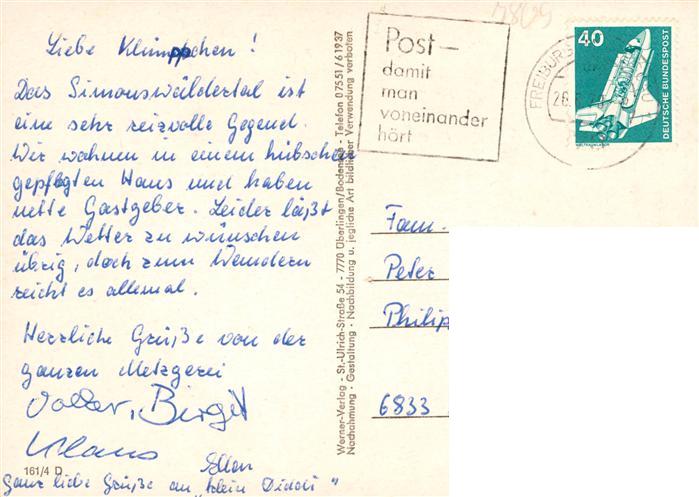 Liebe Klümppchen!
Das Simonswäldertal ist
eine sehr reizvolle Gegend.
Wir wohnen in einem hübschen
gepflegten Haus und haben
nette Gastgeber. Leider läßt
das Wetter zu wünschen
übrig, doch zum Wandern
reicht es allemal.
Herzliche Grüße von der
ganzen Metzgerei
Birgit
Klaus
Ellen
161/4 D
Ganz liebe Grüße an "klein Diddi"
Werner-Verlag · St.-Ulrich-Straße 54 - 7770 Überlingen/Bodensee · Telefon 07551/61937
Nachahmung · Gestaltung · Nachbildung u. jegliche Art bildlicher Verwendung verboten
Post–
damit
man
voneinander
hört
FREIBURG
26.
40
DEUTSCHE BUNDESPOST
WELTRAUMLABOR
Fam.
Peter
Philip
6833